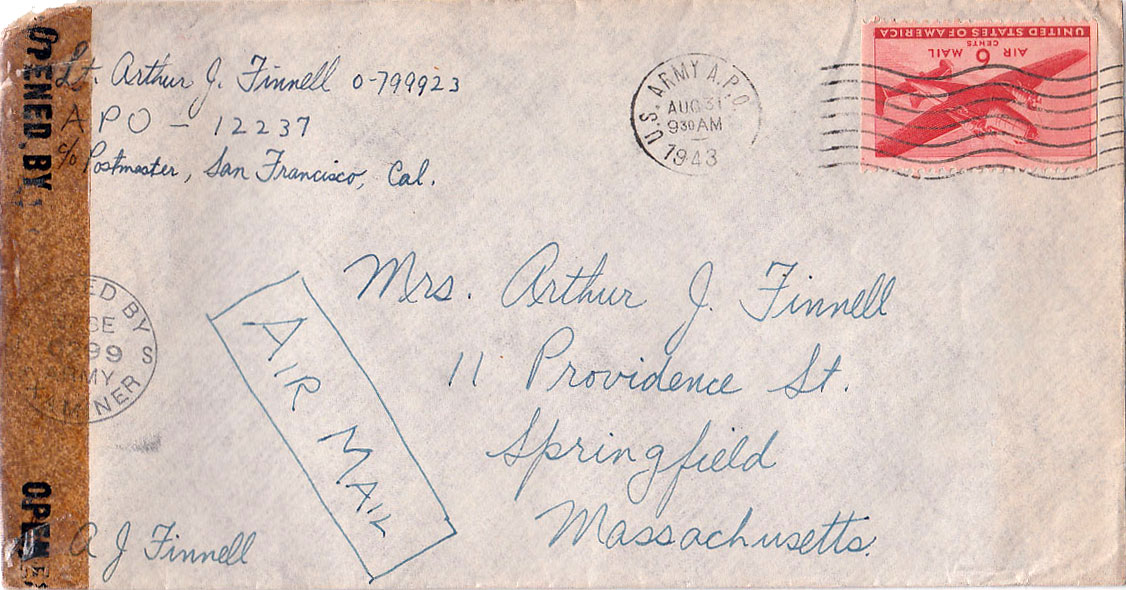 OPENED BY
Lt. Arthur J. Finnell O-799923
APO - 12237
c/o Postmaster, San Francisco, Cal.
U.S. ARMY A.P.O.
AUG 31
9 30 AM
1943
UNITED STATES OF AMERICA
CENTS
6
AIR MAIL
Mrs. Arthur J. Finnell
11 Providence St.
Springfield
Massachusetts.
AIR MAIL
ED BY
99
S
ARMY
MINER
OPENE
A J Finnell